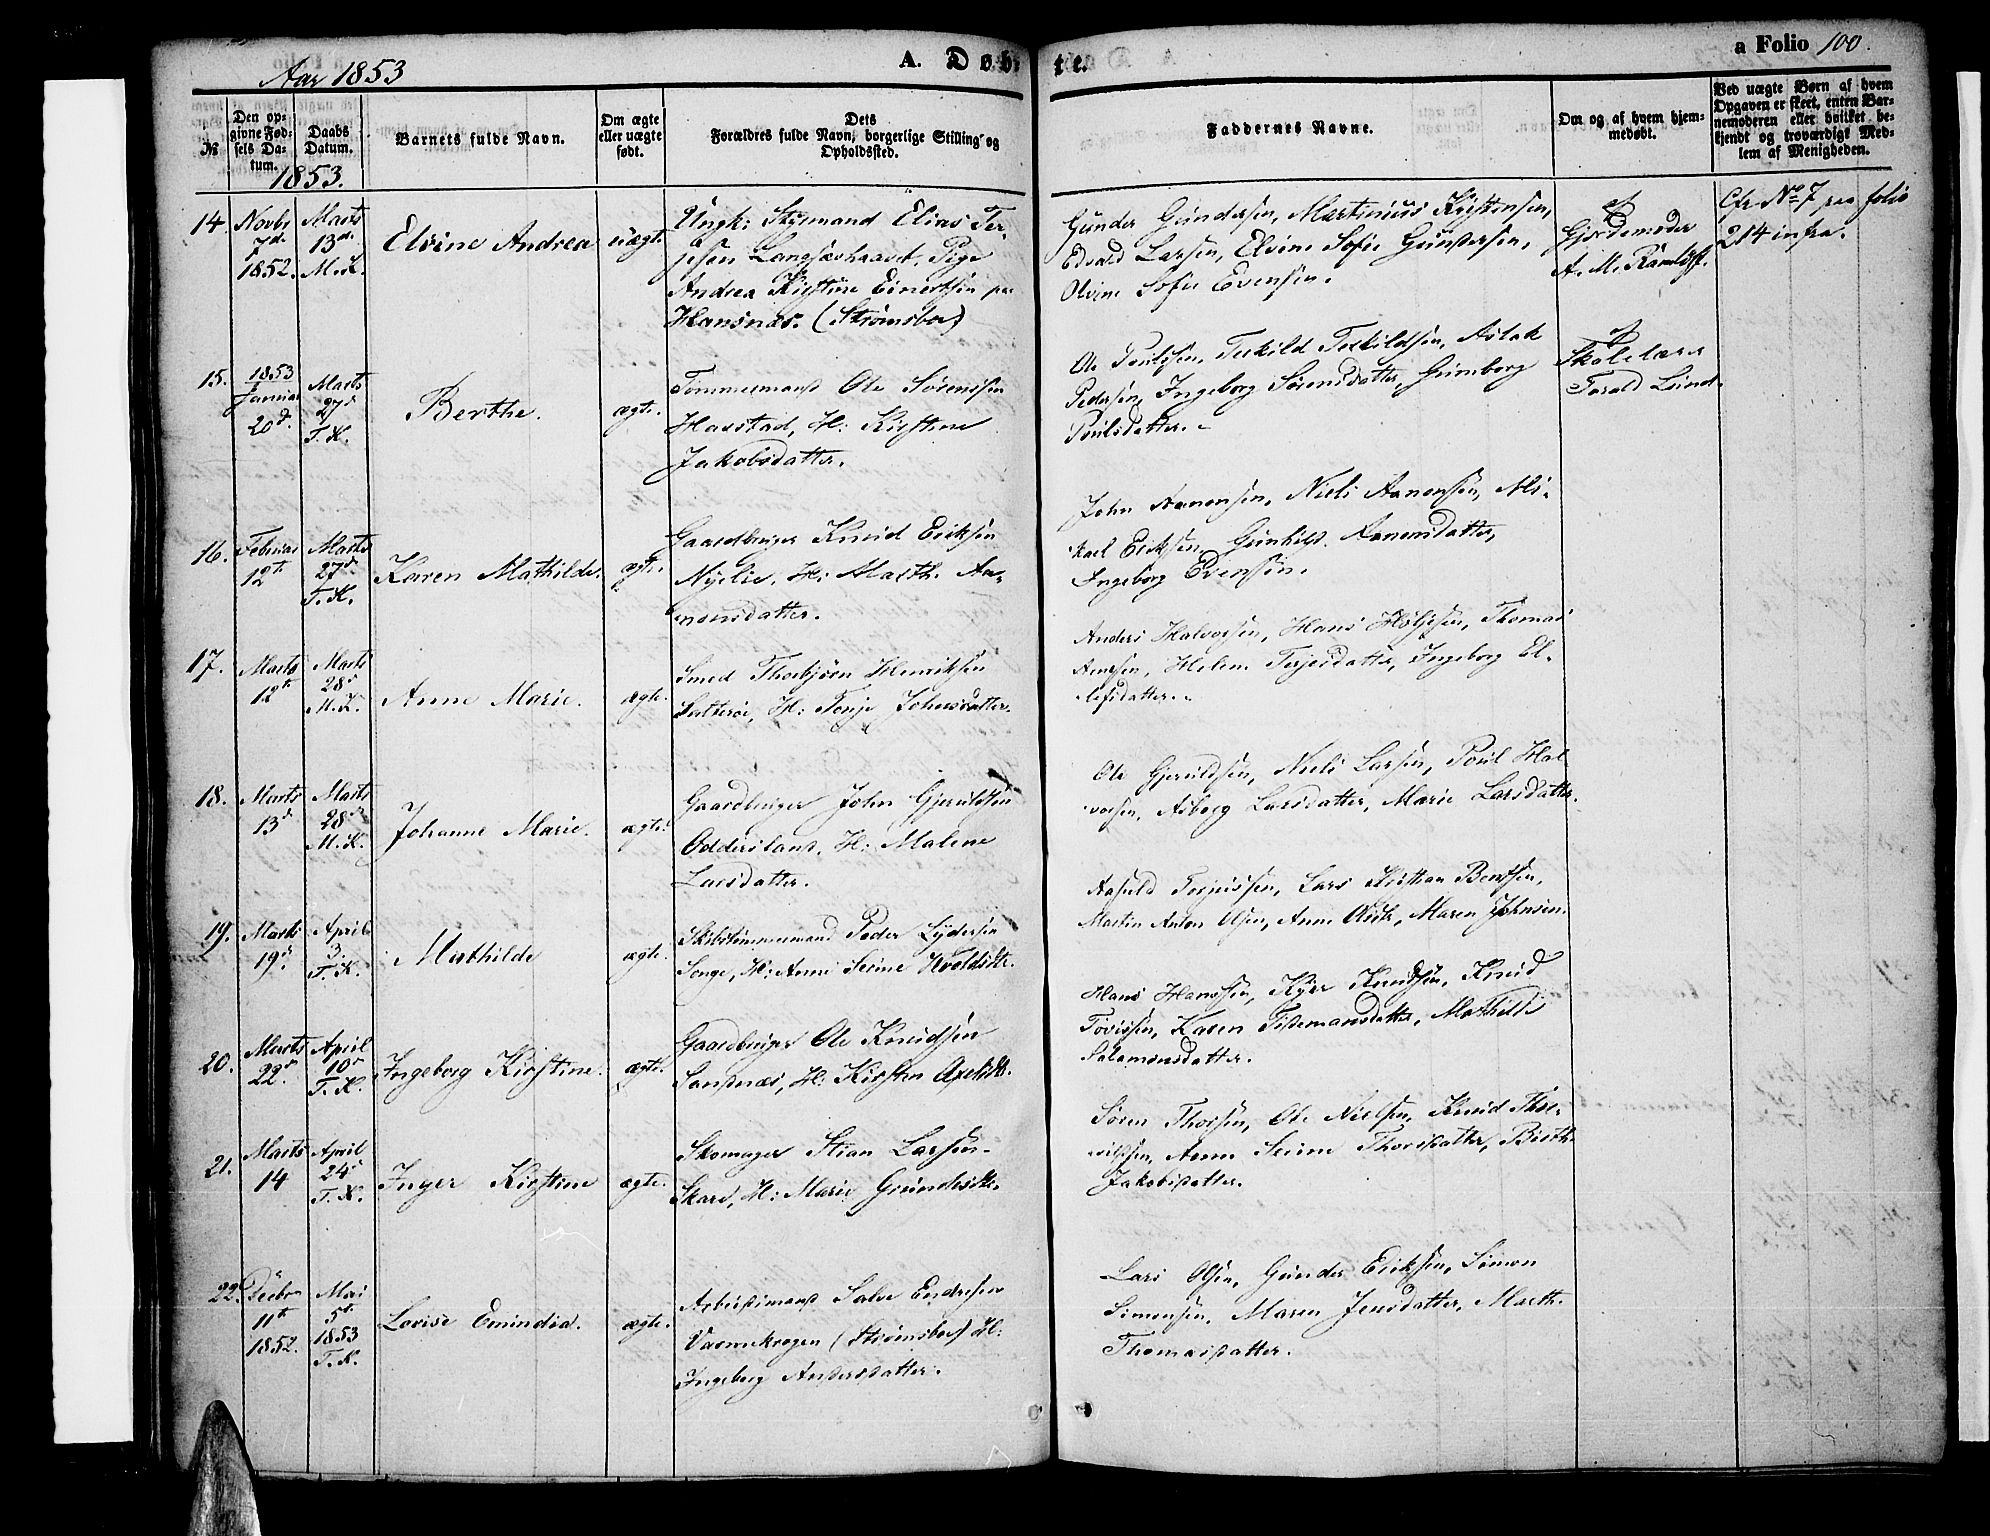 Aar 1853
A. Døbte.
a Folio 100.
№
Den op-
givne Fød-
sels Da-
tum.
Daabs
Datum.
Barnets fulde Navn.
Om ægte
eller uægte
født.
Dets
Forældres fulde Navn, borgerlige Stilling og
Opholdssted.
Faddernes Navne.
Om og af hvem hjem-
medøbt.
Ved uægte Børn af hvem
Opgaven er skeet, enten Bar-
nemoderen eller hvilket be-
kjendt og troværdigt Med-
lem af Menigheden.
1853.
14.
Novbr
7de
1852.
Marts
13de
M. K.
Elvine Andrea
uægte
Ungk: Styrmand Elias Ter-
jesen Langsævhaavet, Pige
Andrea Kirstine Einertsen paa
Hansnæs. (Strømsboe)
Gunder Gundersen, Martinius Kirstensen,
Edvard Larsen, Elvine Sofie Gundersen,
Olvine Sofie Evensen.
af
Gjordemoder
A. M.
Cfr No 7 paa folio
214 infra.
15.
1853
Januar
20d.
Marts
27d
T. K.
Berthe.
ægte.
Tømmermand Ole Sørenssen
Havstad, H: Kirstine
Jakobsdatter.
Ole Poulssen, Terkild Terkildsen, Aslak
Pedersen, Ingeborg Sørensdatter, Gunborg
Poulsdatter.
af
Skolelærer
Tarald Lund.
16.
Februar
12te
Marts
27d
T. K.
Karen Mathilde.
ægte.
Gaardbruger Knud Eriksen
Nyelie, H: Marth. Aa-
nonsdatter.
John Aanonsen, Niels Aanonsen, Mi-
kael Eriksen, Gunhild Aanonsdatter,
Ingeborg Evensen.
17.
Marts
12te
Marts
28d
M. K.
Anne Marie.
ægte.
Smed Thorbjørn Henriksen
H: Tonje Johnsdatter.
Anders Halvorsen, Hans Høljesen, Thomas
Helene Terjesdatter, Ingeborg El-
lefsdatter.
18.
Marts
13d
Marts
28d
M. K.
Johanne Marie.
ægte.
Gaardbruger John Gjeruldsen
Oddersland, H: Malene
Larsdatter.
Ole Gjeruldsen, Niels Larsen, Poul Hal-
vorsen, Asborg Larsdatter, Marie Larsdatter.
19.
Marts
19d.
April
3.
T. K.
Mathilde
ægte.
Skibstømmermand Peder Lydersen
Songe, H: Anne Serine
Aasuld Terjussen, Lars Kristian Bentsen,
Martin Anton Olsen, Anne Maren Johnsen.
20.
Marts
22d.
April
10d
T. K.
Ingeborg Kirstine.
ægte.
Gaardbruger Ole Knudsen
Sandnæs, H: Kirsten Axelsdtr.
Hans Hanssen, Knudsen, Knud
Tovissen, Karen Tidemansdatter, Mathilde
Salamonsdatter.
21.
Marts
14
April
24d
T. K.
Inger Kirstine
ægte.
Skomager Stian Larsen
Skare, H: Marie
Søren Thorsen, Ole Nielsen, Knud Thor-
Anne Serine Thorsdatter, Berth.
Jakobsdatter.
22.
Decbr
11te
1852.
Mai
5te
1853
T. K.
Lovise Emindia.
ægte.
Arbeidsmand Salve Endresen
Varmekrogen (Strømsboe) H:
Ingeborg Andersdatter.
Lars Olsen, Gunder Eriksen, Simon
Simonsen, Maren Jensdatter, Marth.
Thomasdatter.